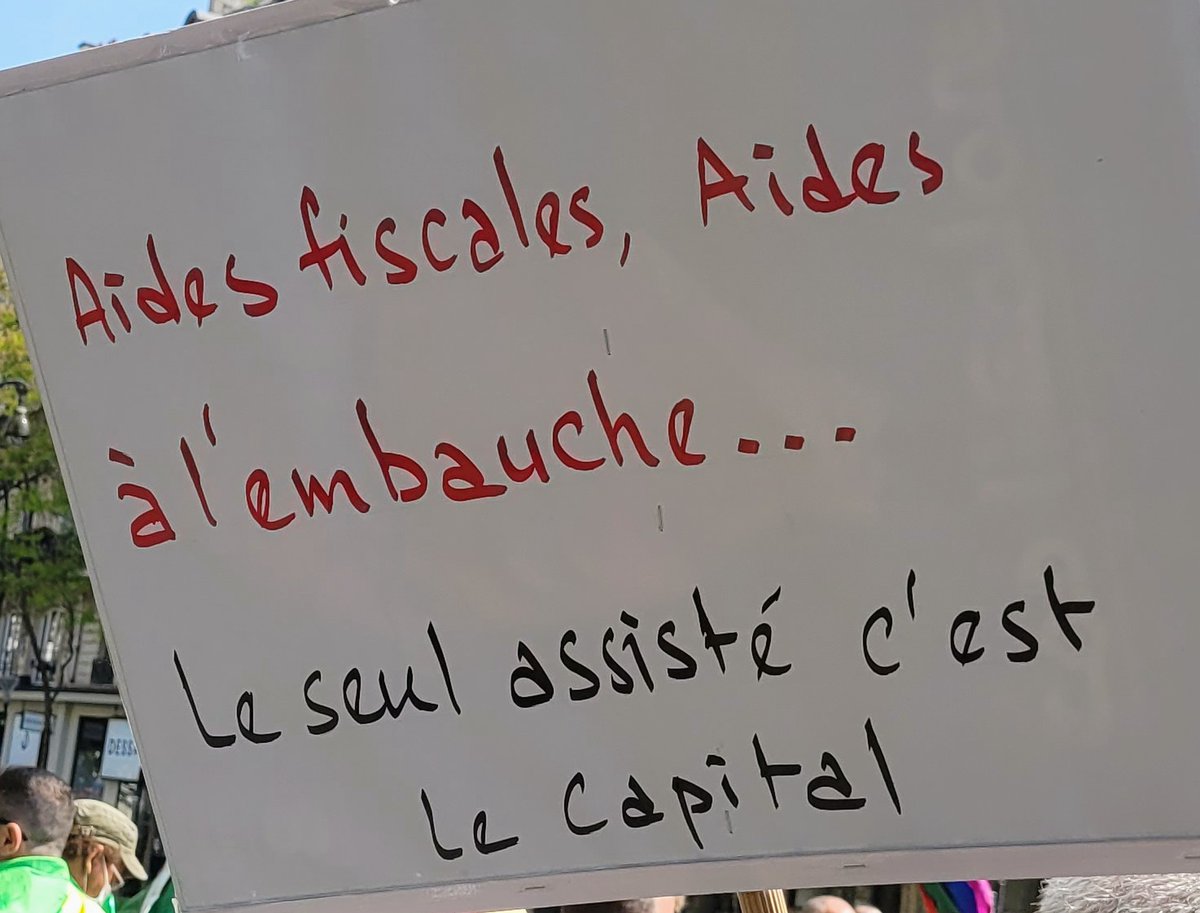 Aides fiscales, Aides
à l'embauche...
Le seul assisté c'est
le capital